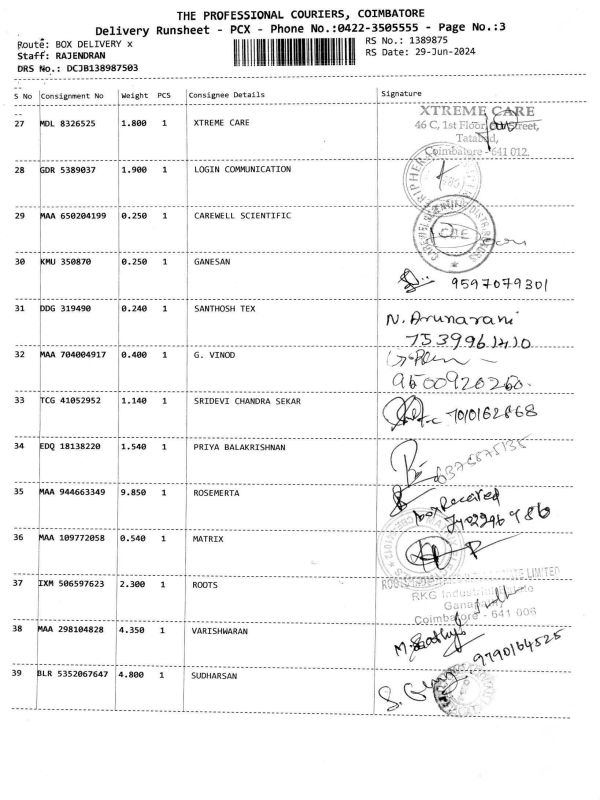 THE PROFESSIONAL COURIERS, COIMBATORE
Delivery Runsheet - PCX - Phone No.:0422-3505555 - Page No.:3
Route: BOX DELIVERY x
RS No.: 1389875
Staff: RAJENDRAN
RS Date: 29-Jun-2024
DRS No.: DCJB138987503
S No Consignment No Weight PCS Consignee Details Signature
27 MDL 8326525 1.800 1 XTREME CARE
XTREME CARE
46 C, 1st Floor, Street,
Tatabad,
Coimbatore - 641 012.
28 GDR 5389037 1.900 1 LOGIN COMMUNICATION
29 MAA 650204199 0.250 1 CAREWELL SCIENTIFIC
CBE
30 KMU 350870 0.250 1 GANESAN
9597079301
31 DDG 319490 0.240 1 SANTHOSH TEX
N. Arunarani
32 MAA 704004917 0.400 1 G. VINOD
9500920260.
33 TCG 41052952 1.140 1 SRIDEVI CHANDRA SEKAR
34 EDQ 18138220 1.540 1 PRIYA BALAKRISHNAN
35 MAA 944663349 9.850 1 ROSEMERTA
Box Received
36 MAA 109772058 0.540 1 MATRIX
37 IXM 506597623 2.300 1 ROOTS
PRIVATE LIMITED
RKG Industrial Estate
Coimbatore - 641 006
38 MAA 298104828 4.350 1 VARISHWARAN
9790164525
39 BLR 5352067647 4.800 1 SUDHARSAN